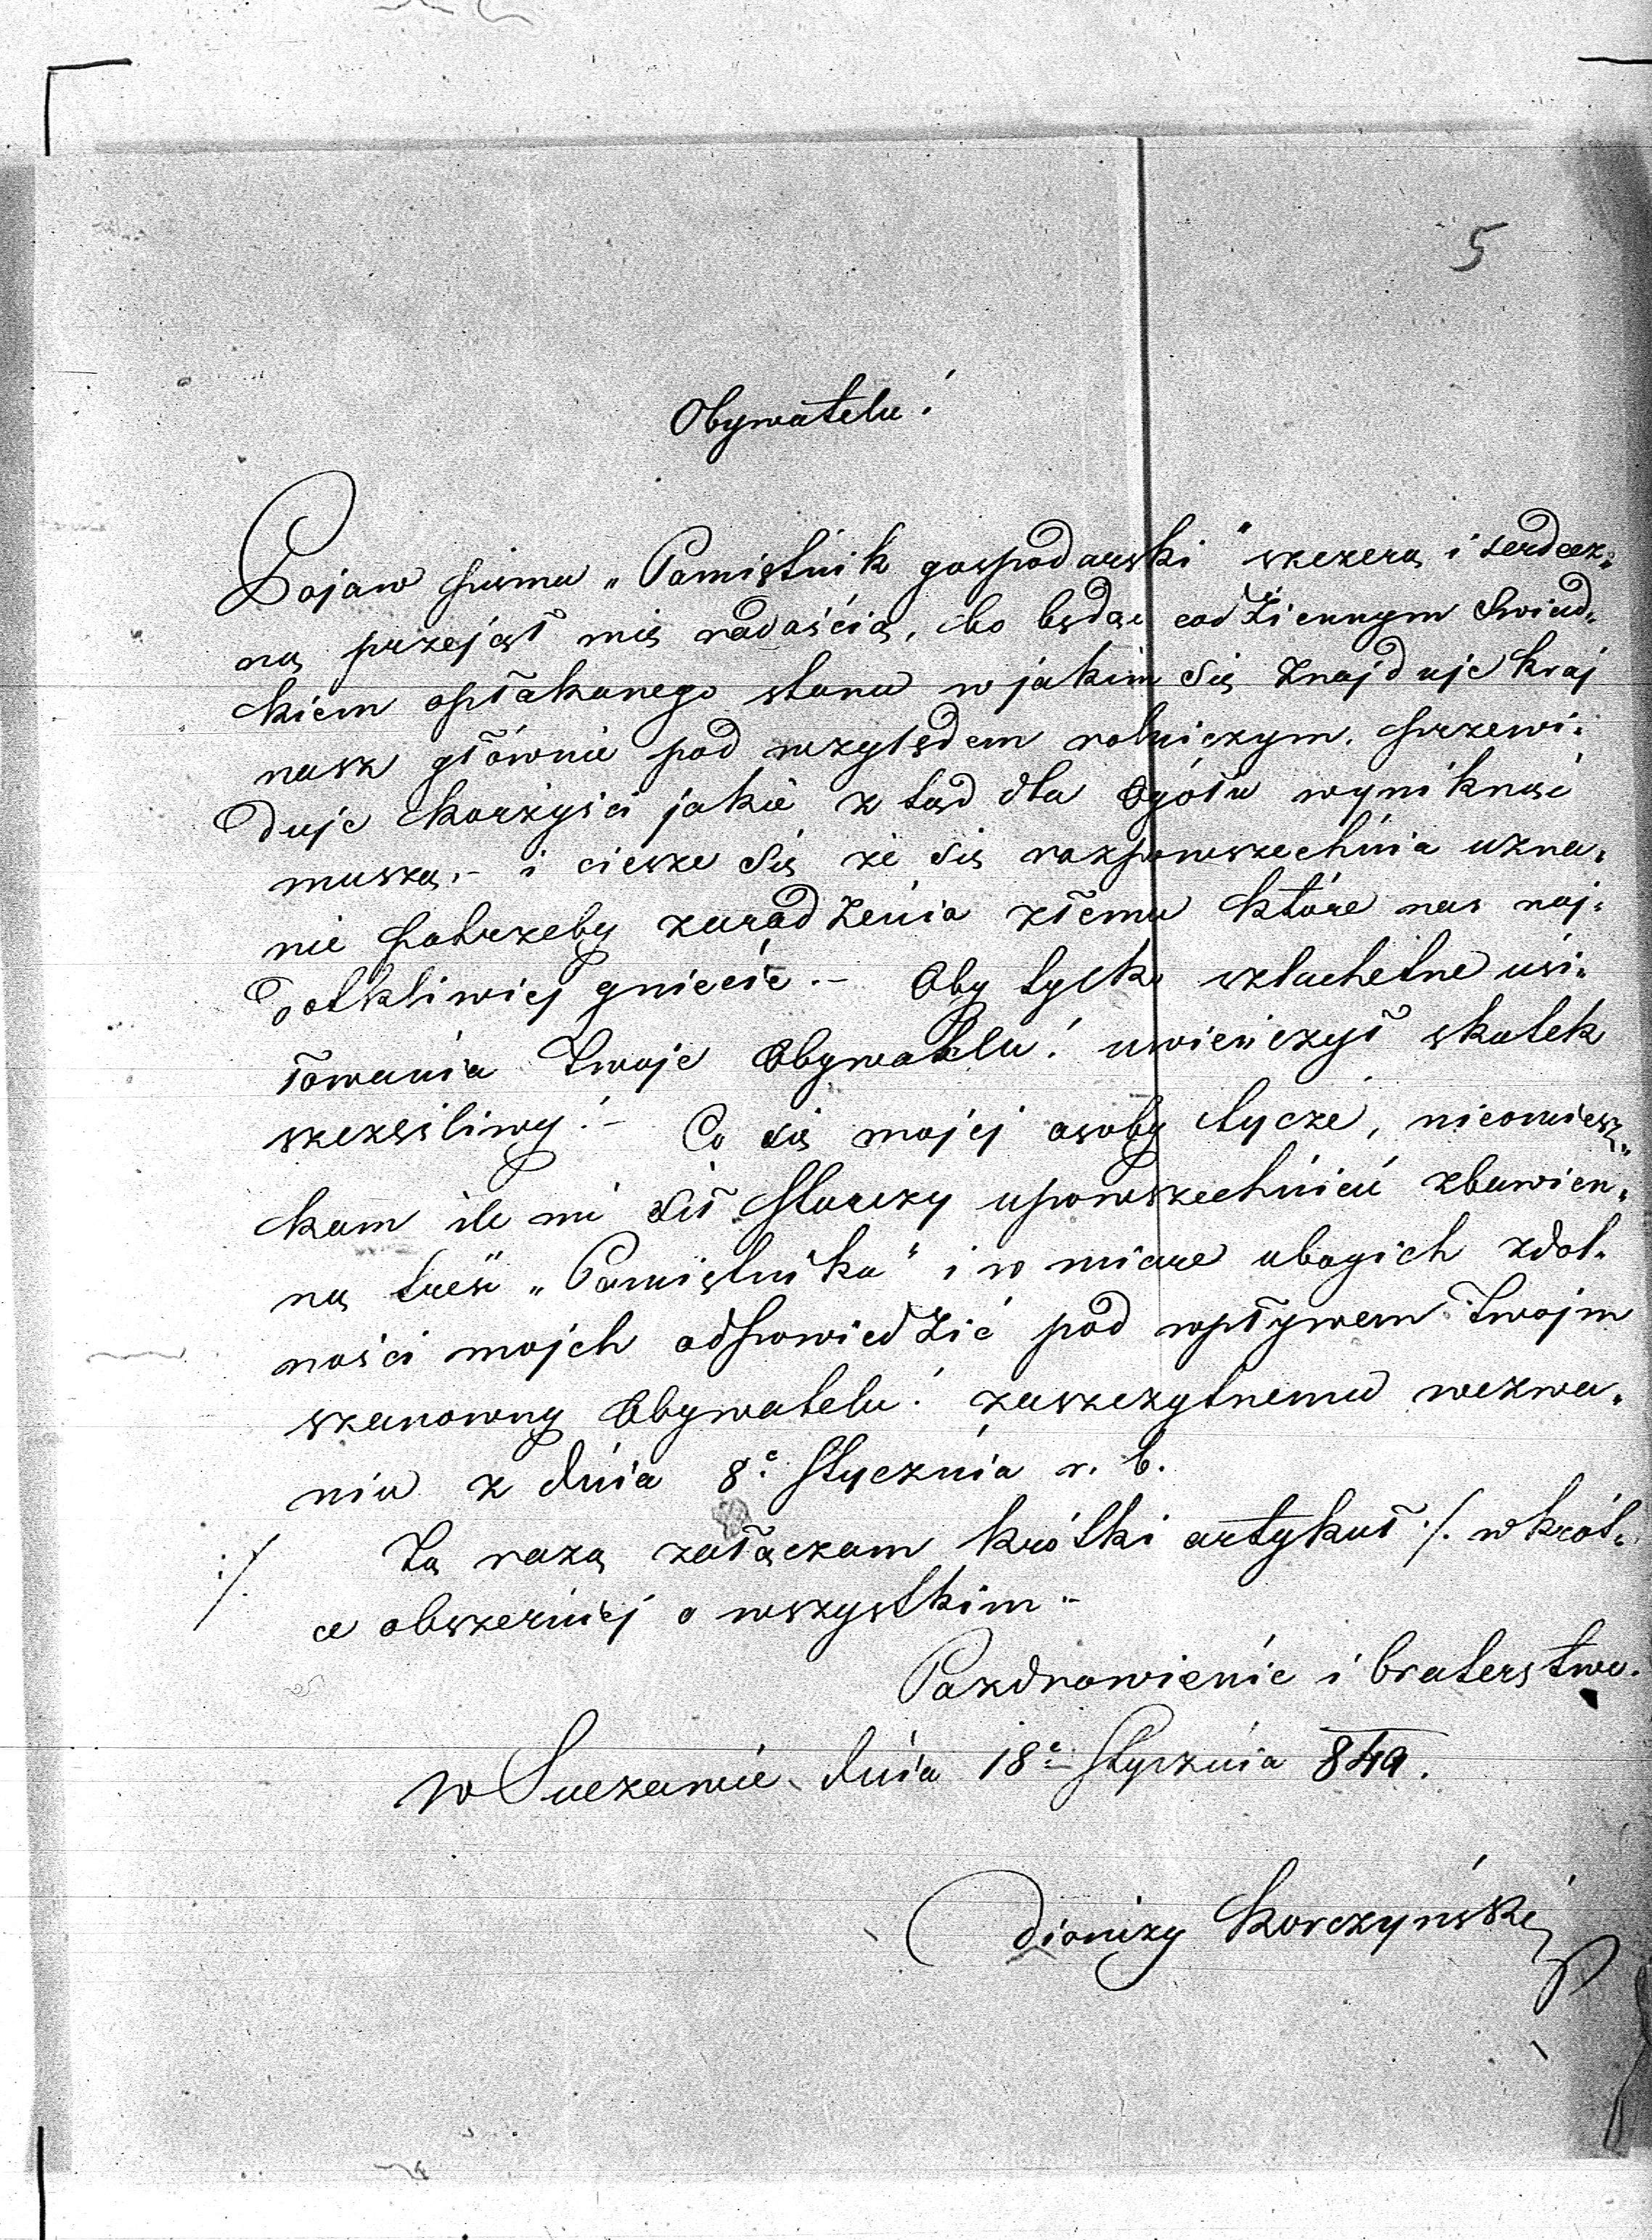 5
Obywatelu!
Pojaw pisma „Pamiętnik gospodarski" szczerą i serdecz-
ną przejął mię radością, bo będąc codziennym świad-
kiem opłakanego stanu w jakim się znajduje kraj
nasz głównie pod względem rolniczym, przewi-
duję korzyści jakie z tąd dla ogółu wyniknąć
muszą. – i cieszę się że się rozpowszechnia uzna-
nie potrzeby zaradzenia złemu które nas naj-
dotkliwiej gniecie. – Oby tylko szlachetne usi-
łowania Twoje Obywatelu! uwieńczył skutek
szczęśliwy! – Co się mojej osoby tycze, nieomiesz-
kam ile mi sił starczy upowszechnić zbawien-
ną treść „Pamiętnika" i w miarę ubogich zdol-
ności mojch odpowiedzić pod wpływem Twojm
szanowny Obywatelu! zaszczytnemu wezwa-
niu z dnia 8º Stycznia r. b.
./. Tą razą załączam krótki artykuł ./. wkrót-
ce obszerniej o wszystkim. –
Pozdrowienie i braterstwo.
w Suczawie dnia 18º Stycznia 849.
Dionizy Korczyński